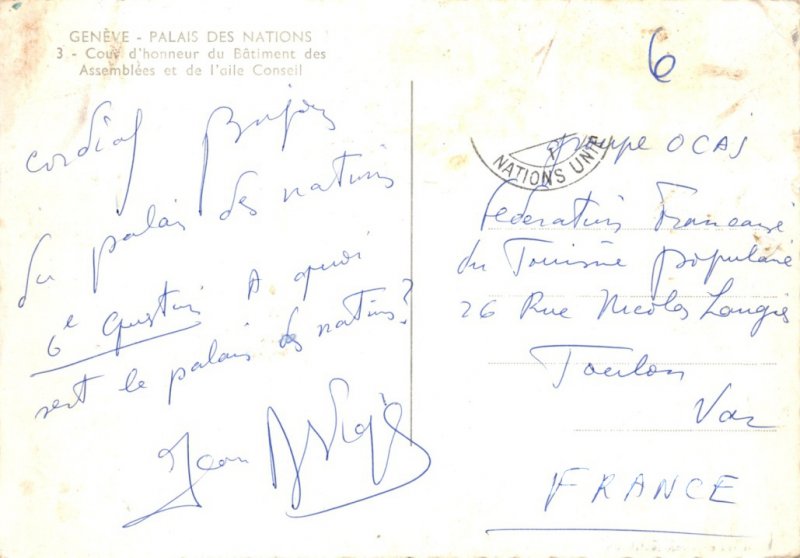 GENÈVE - PALAIS DES NATIONS
3 - Cour d'honneur du Bâtiment des
Assemblées et de l'aile Conseil
cordial Bonjour
du palais des nations
6e Question A quoi
sert le palais des nations?
Jean
6
NATIONS UNI
groupe OCAJ
Federation Francaise
du Tourisme populaire
26 Rue Nicolas Laugier
Toulon
Var
FRANCE